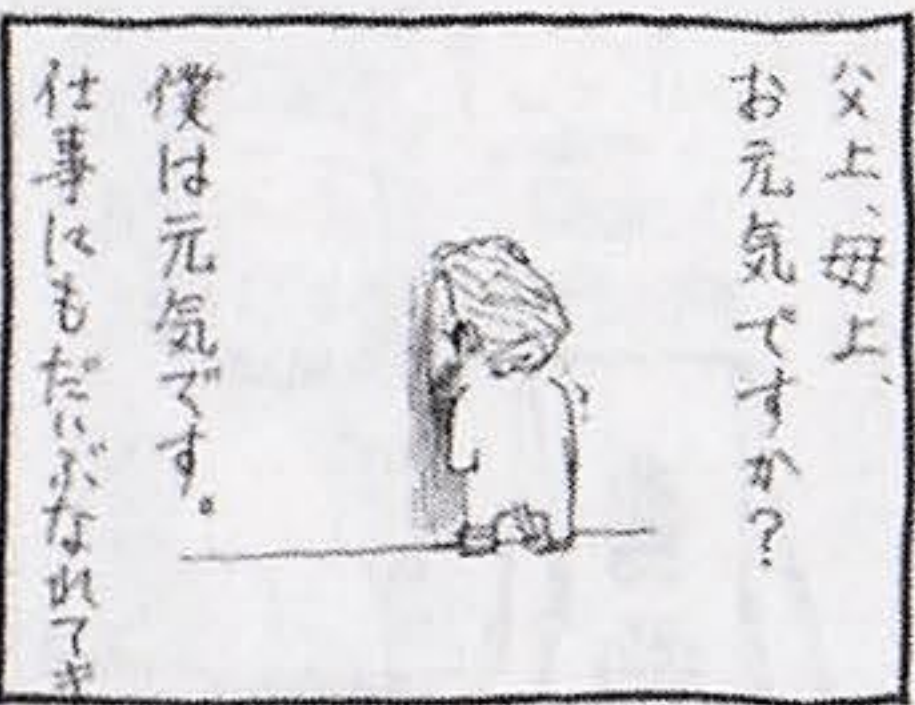 父上、母上、
お元気ですか?
僕は元気です。
仕事にもだいぶなれてき